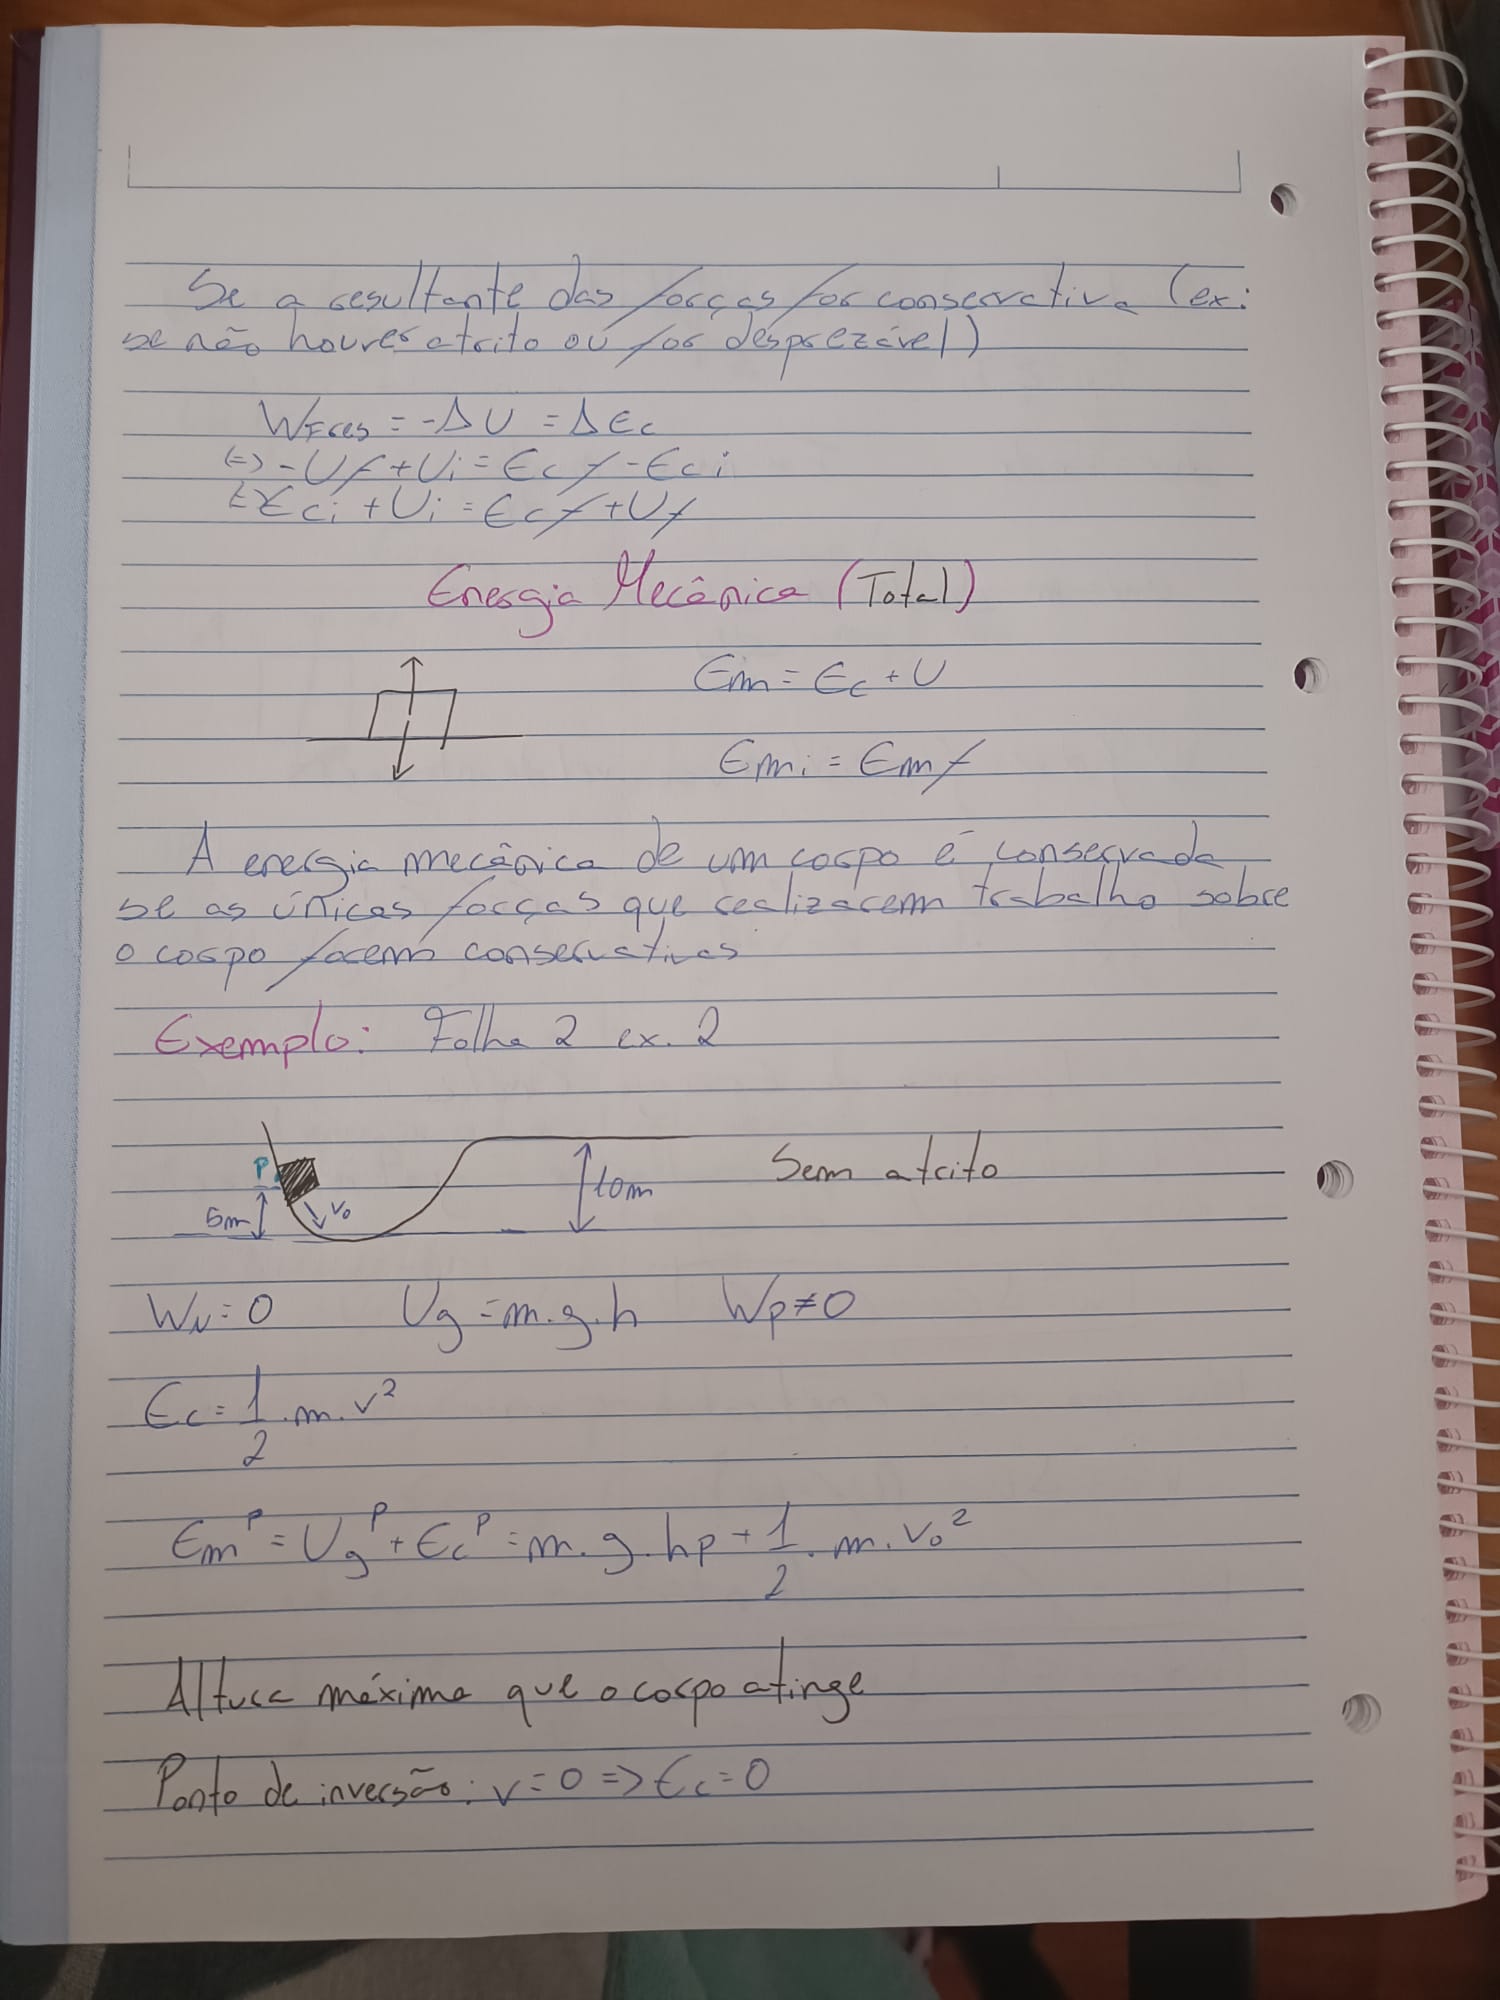 Se a resultante das forças for conservativa (ex:
se não houver atrito ou for desprezável)
WFres = -ΔU = ΔEc
(=) -Uf + Ui = Ecf - Eci
(=) Eci + Ui = Ecf + Uf
Energia Mecânica (Total)
Em = Ec + U
Emi = Emf
A energia mecânica de um corpo é conservada
se as únicas forças que realizarem trabalho sobre
o corpo forem conservativas
Exemplo: Folha 2 ex. 2
P 10m Sem atrito
5m v₀
WN = 0 Ug = m.g.h Wp ≠ 0
Ec = 1/2 .m.v²
Em^P = Ug^P + Ec^P = m.g.hp + 1/2 . m. v₀²
Altura máxima que o corpo atinge
Ponto de inversão: v = 0 => Ec = 0